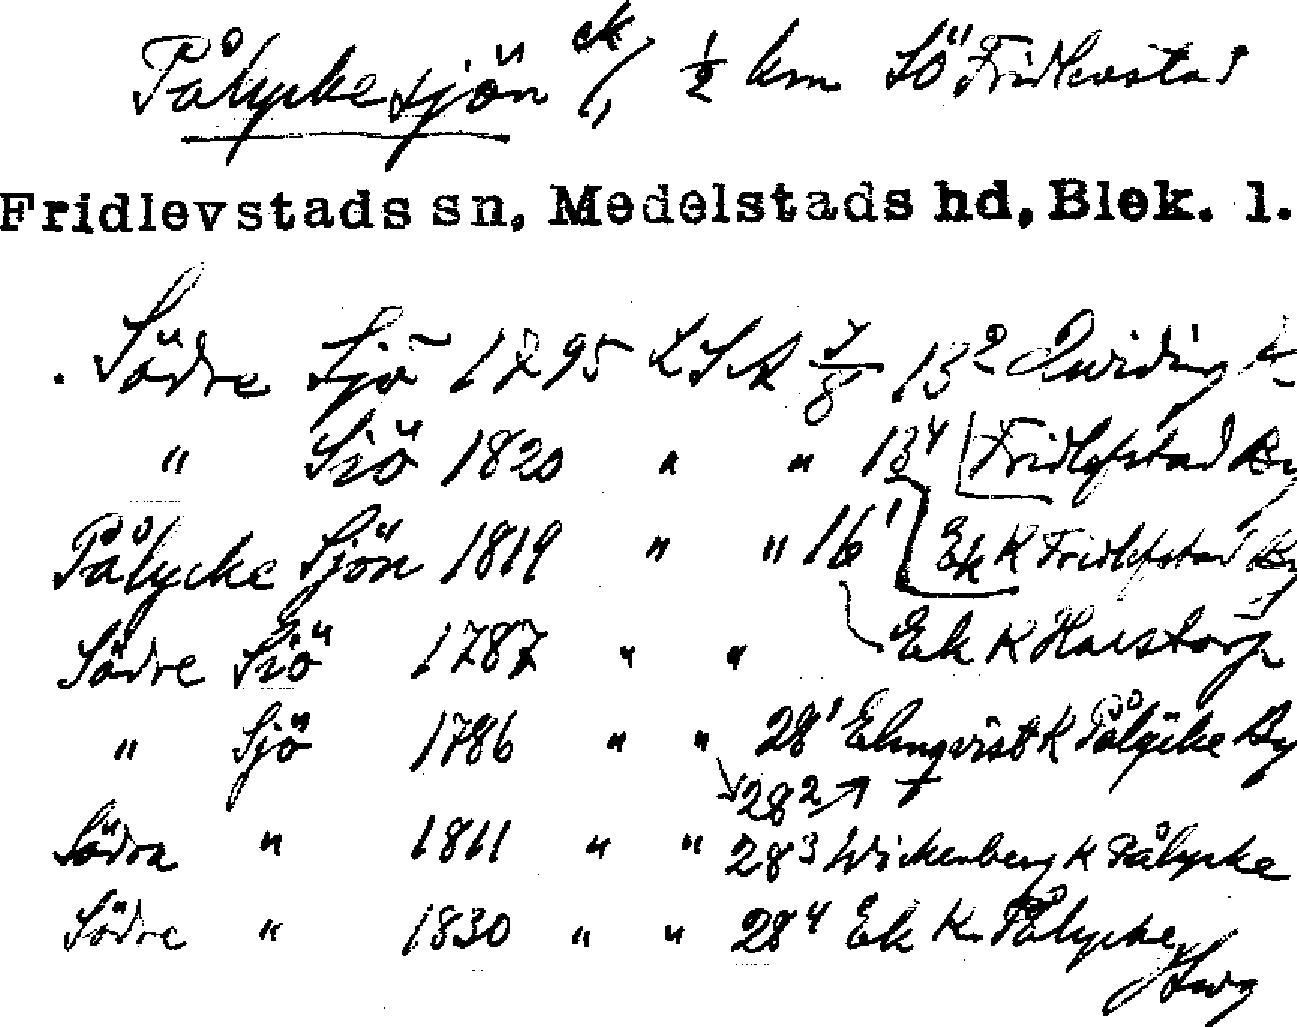 Pålyckesjön ek/, 1/2 km SÖ Fridlevstad
Fridlevstads sn, Medelstads hd, Blek. l.
Södre Sjö 1795 LSA J/8 13² Qwiding k
" Siö 1820 " " 13⁴ Fridlefstad By
Pålycke Sjön 1819 " " 16¹ Ek K Fridlefstad By
Södre Siö 1787 " " Ek K Horstorp
" Sjö 1786 " " 28¹ Elmqvist K Pålycke By
28²
Södra " 1811 " " 28³ Wickenberg K Pålycke
Södre " 1830 " " 28⁴ Ek K Pålycke